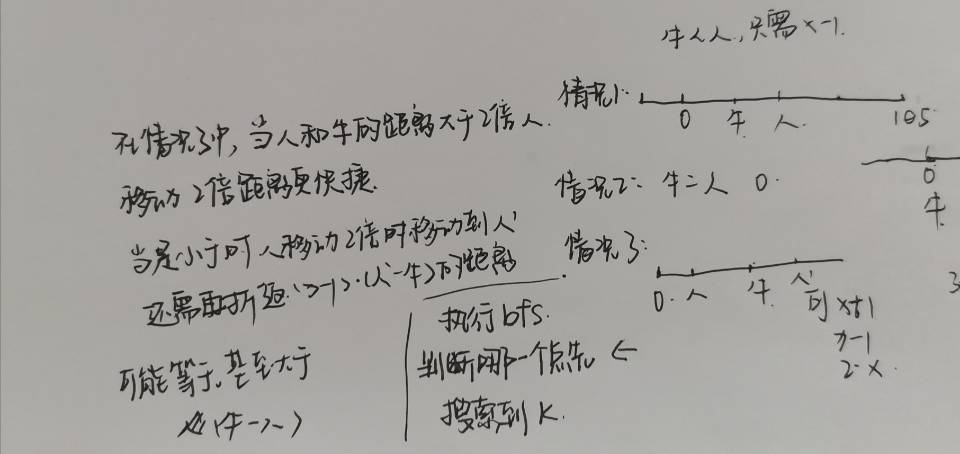 牛<人,只需x-1.
情况1:
0 牛 人 105
在情况3中,当人和牛的距离大于2倍人.
移动2倍距离更快捷.
情况2: 牛=人 0.
0
牛
当是小于时人移动2倍时移动到人'
还需再折返(x-1)·(人'-牛)的距离
情况3:
0. 人 牛 人'
可 x+1
x-1
2·x.
执行bfs.
判断哪一个点先 ←
搜索到K.
可能等于,甚至大于
(牛-人)
3